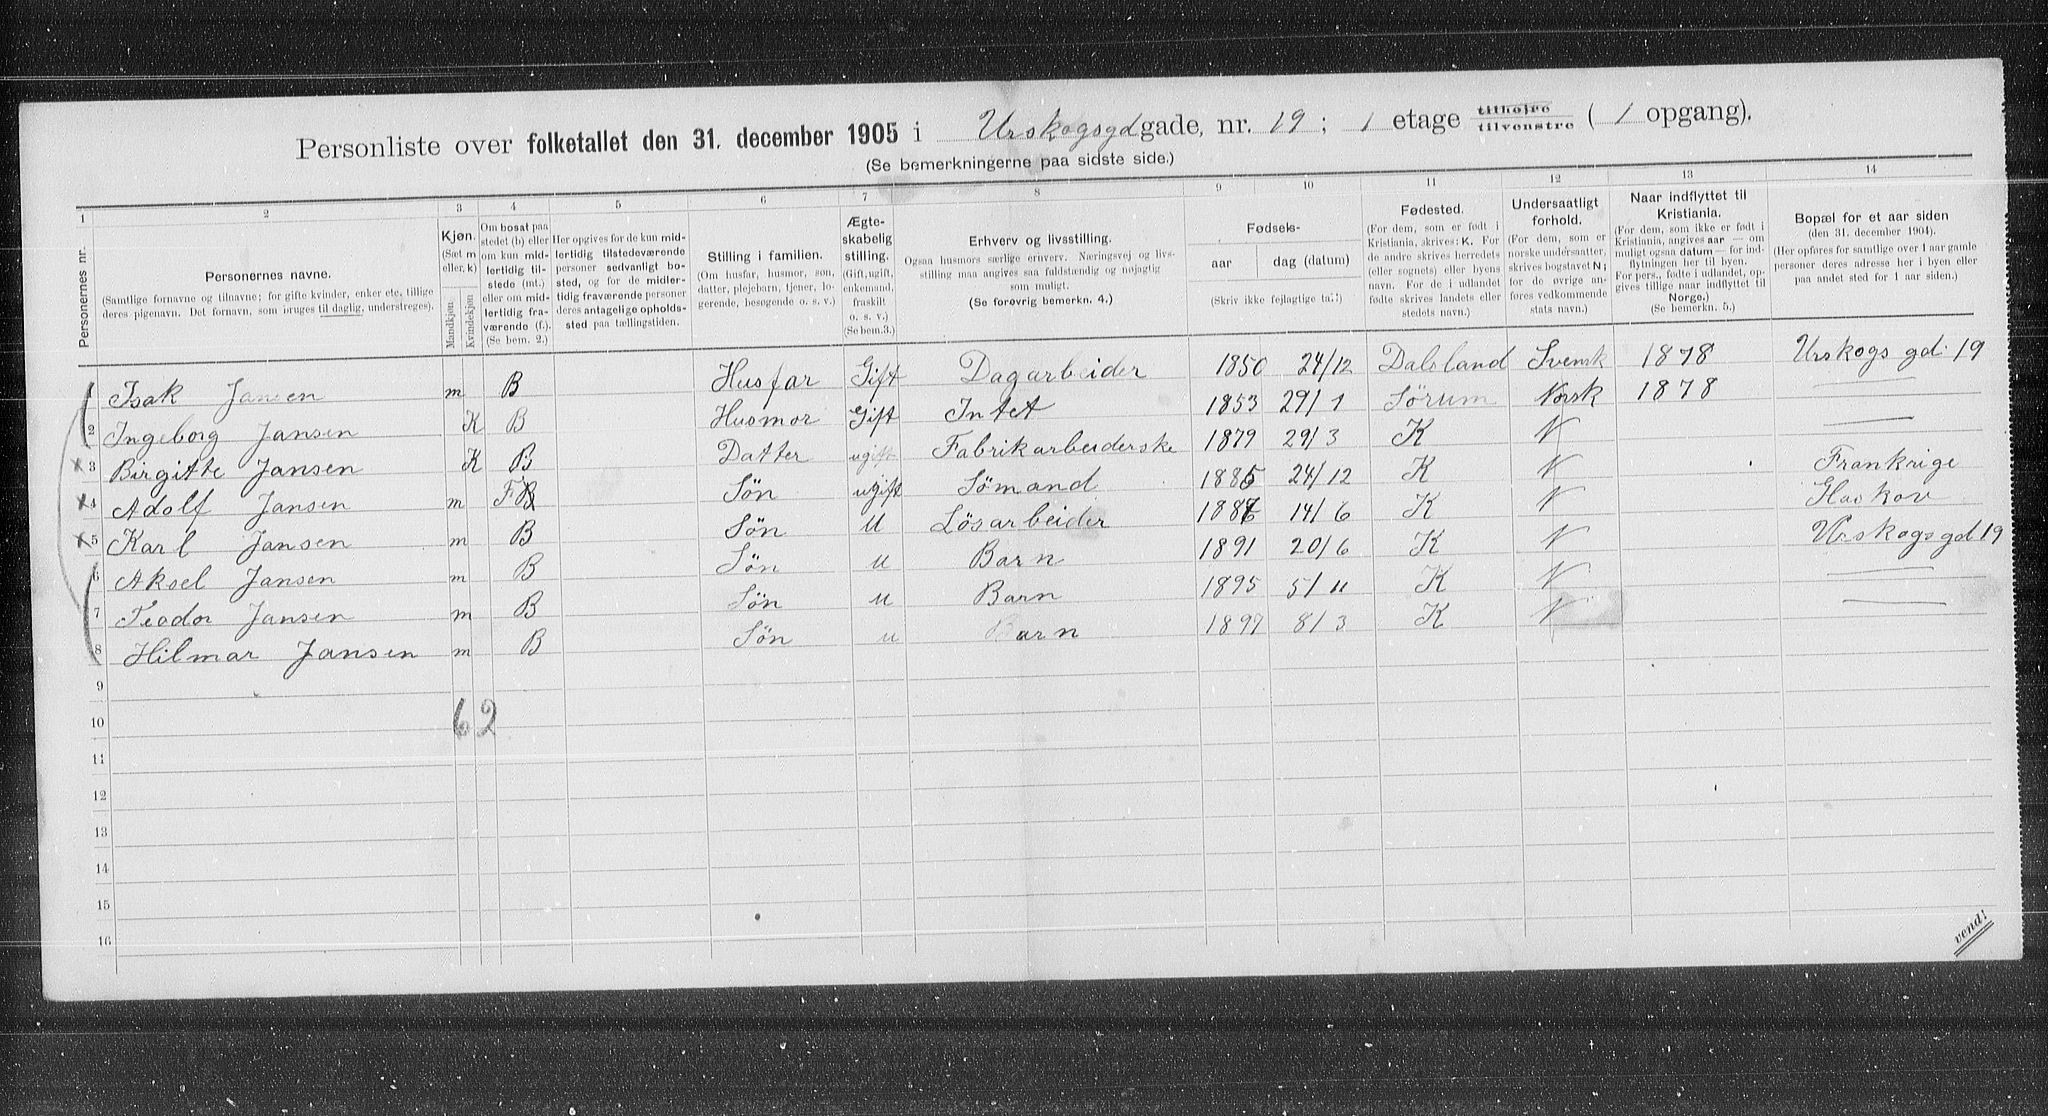 Personliste over folketallet den 31. december 1905 i Urskogsgdgade, nr. 19; 1 etage tilhøjre tilvenstre (1 opgang).
(Se bemerkningerne paa sidste side.)
1 2 3 4 5 6 7 8 9 10 11 12 13 14
Personernes nr.
Personernes navne.
(Samtlige fornavne og tilnavne; for gifte kvinder, enker etc. tillige deres pigenavn. Det fornavn, som bruges til daglig, understreges).
Kjøn. (Sæt m eller k) Mandkjøn. Kvindekjøn
Om bosat paa stedet (b) eller om kun midlertidig tilstede (mt.) eller om midlertidig fraværende (f.). (Se bem. 2.)
Her opgives for de kun midlertidig tilstedeværende personer sedvanlig bosted, og for de midlertidig fraværende personer deres antagelige opholdssted paa tællingstiden.
Stilling i familien.
(Om husfar, husmor, søn, datter, plejebarn, tjener, logerende, besøgende o. s. v.)
Ægteskabelig stilling.
(Gift, ugift, enkemand, fraskilt o. s. v.) (Se bem. 3.)
Erhverv og livsstilling.
Ogsaa husmors særlige erhverv. Næringsvej og livsstilling maa angives saa fuldstændig og nøjagtig som muligt.
(Se forøvrig bemerkn. 4.)
Fødsels-
aar dag (datum)
(Skriv ikke fejlagtige tal!)
Fødested.
(For dem, som er født i Kristiania, skrives: K. For de andre skrives herredets (eller sognets) eller byens navn. For de i udlandet fødte skrives landets eller stedets navn.)
Undersaatligt forhold.
(For dem, som er norske undersaatter, skrives bogstavet N; for de øvrige anføres vedkommende stats navn.)
Naar indflyttet til Kristiania.
(For dem, som ikke er født i Kristiania, angives aar — om muligt ogsaa datum — for indflytningen her til byen. For pers., fødte i udlandet, opgives tillige naar indflyttet til Norge.) (Se bemerkn. 5.)
Bopæl for et aar siden
(den 31. december 1904).
(Her opføres for samtlige over 1 aar gamle personer deres adresse her i byen eller paa andet sted for 1 aar siden.)
1 Isak Jansen m B Husfar Gift Dagarbeider 1850 24/12 Dalsland Svensk 1878 Urskogs gd. 19
2 Ingeborg Jansen K B Husmor Gift Intet 1853 29/1 Sørum Norsk 1878 —
3 Birgitte Jansen K B Datter ugift Fabrikarbeiderske 1879 29/3 K N —
4 Adolf Jansen m F Søn ugift Sömand 1885 24/12 K N Frankrige
5 Karl Jansen m B Søn U Lösarbeider 14/6 K N
6 Aksel Jansen m B Søn u Barn 1891 20/6 K N Urskogsgd 19
7 Teodor Jansen m B Søn u Barn 1895 5/11 K N —
8 Hilmar Jansen m B Søn u Barn 1897 8/3 K N —
9
10
11
12
13
14
15
16
62
vend!